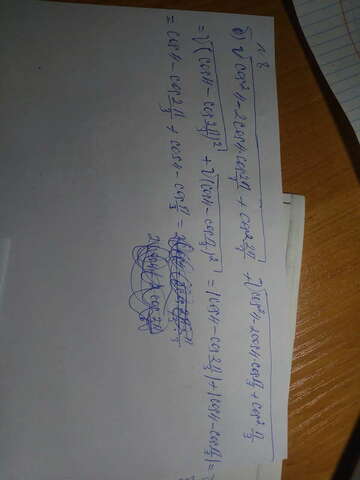 N 8
б) √cos²4 - 2cos4·cos 2π/3 + cos² 2π/3 + √cos²4 - 2cos4·cos π/3 + cos² π/3
= √(cos4 - cos 2π/3)² + √(cos4 - cos π/3)² = |cos4 - cos 2π/3| + |cos4 - cos π/3| =
= cos4 - cos 2π/3 + cos4 - cos π/3 =